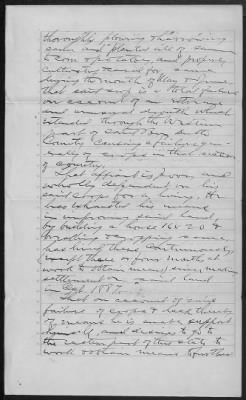 thoroughly plowing & harrowing
same and planted all of same
to corn & potatoes, and properly
cultivating same
during the month of May & June
that said crop is a total failure
on account of an
and unusual drouth which
extended through the Western
part of said
County causing a failure gen-
erally of crops in that section
of country.
That affiant is poor and
wholly dependent on his
said crops for a living. He
has exhausted his means
in improving said land,
by building a house 16 x 20 &
breaking up same
has lived there continuously
(except three or four months at
work to obtain means) since making
settlement on said land
in Sept 1887.
That on account of said
failure of crops & lack thereby
of means he is unable support
himself and desires to go to
the eastern part of this state to
work & obtain means to